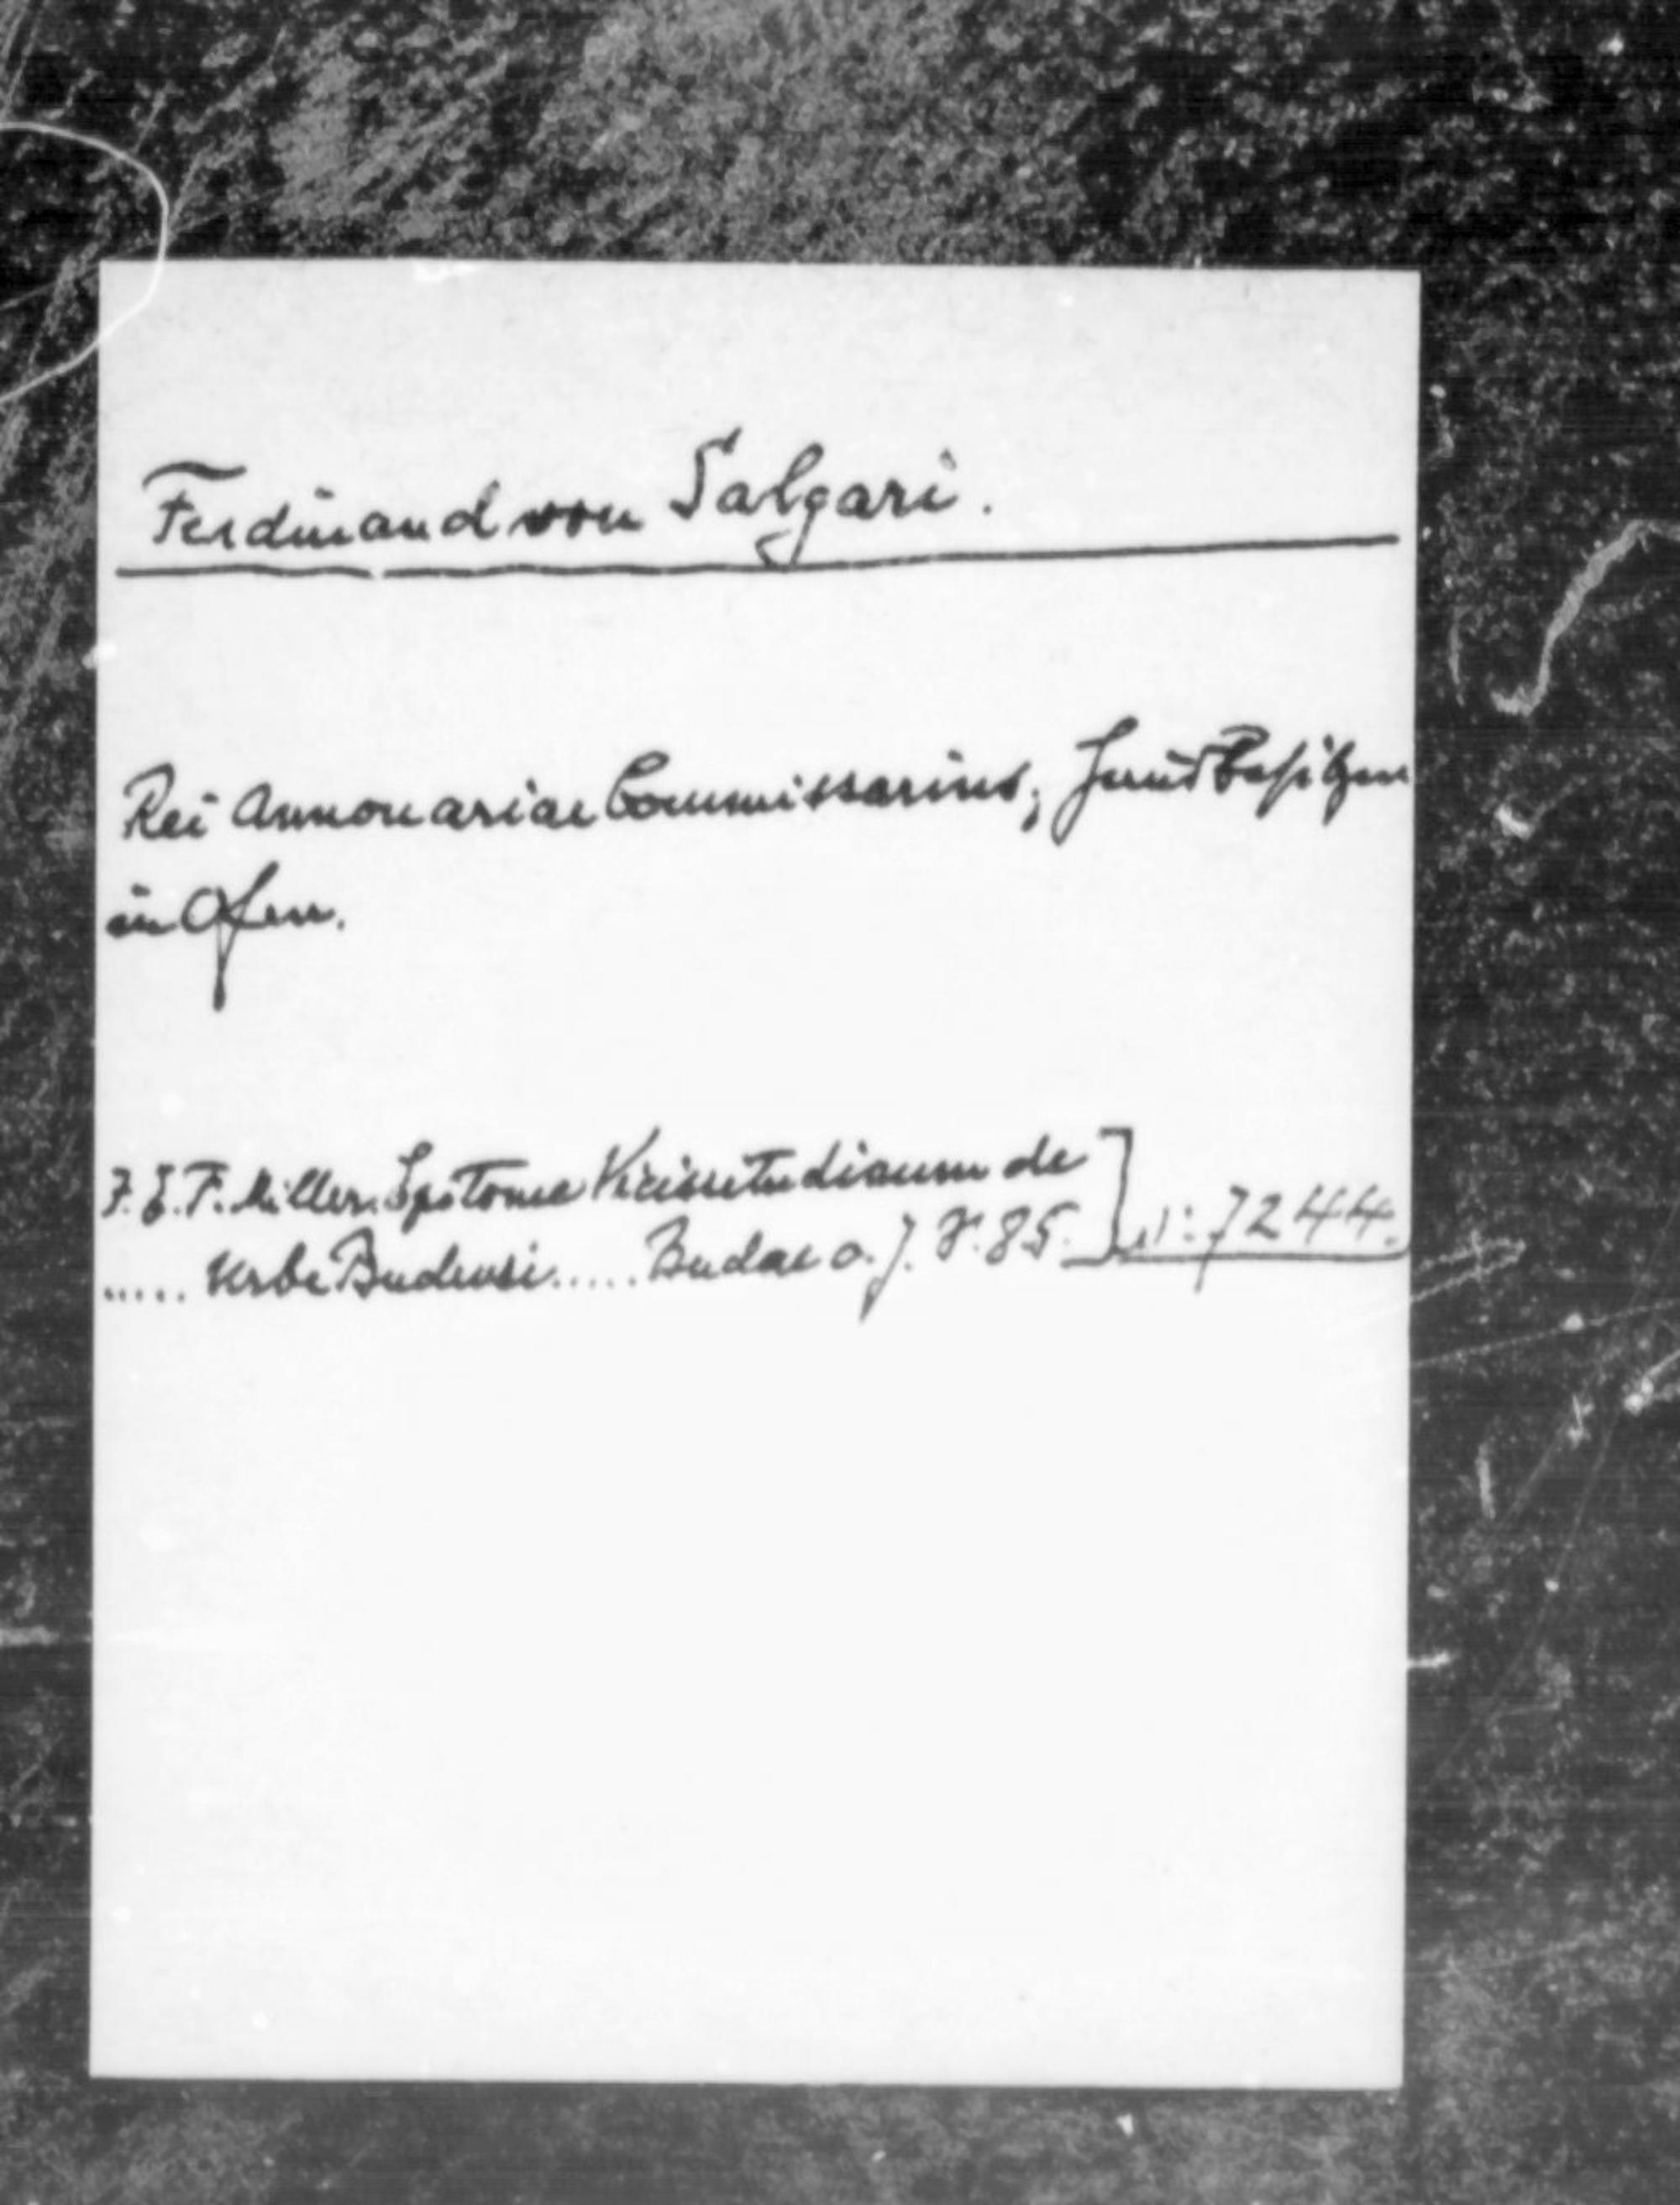 Ferdinand von Salgari.
Rei Annonariae Commissarius; Grundbesitzer
in Ofen.
J. F. Miller. Epitome Vicissitudinum de
..... Urbe Budensi ..... Budae o. J. S. 85. ] 7244.